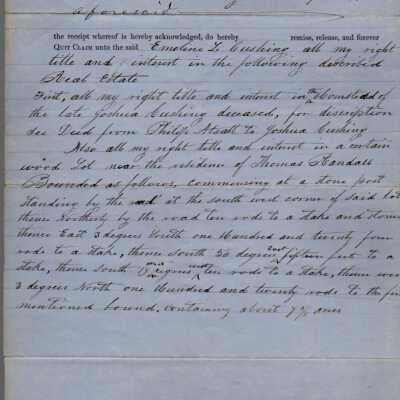 aforesaid
the receipt whereof is hereby acknowledged, do hereby remise, release, and forever
QUIT CLAIM unto the said Emeline L. Cushing, all my right
title and interest in the following described
Real Estate
First, all my right title and interest in the Homstead of
the late Joshua Cushing deceased, for discription
see Deed from Philip to Joshua Cushing
Also all my right title and interest in a certain
wood Lot near the residence of Thomas Randall
Bounded as follows, commensing at a stone post
standing by the road at the south west corner of said Lot
thence Northerly by the road ten rods to a stake and stones
thence East 3 degrees South one Hundred and twenty four
rods to a stake, thence South 20 degrees East fifteen feet to a
stake, thence South degrees west ten rods to a stake, thence west
3 degrees North one Hundred and twenty rods to the
mentioned bound, containing about 7 acres